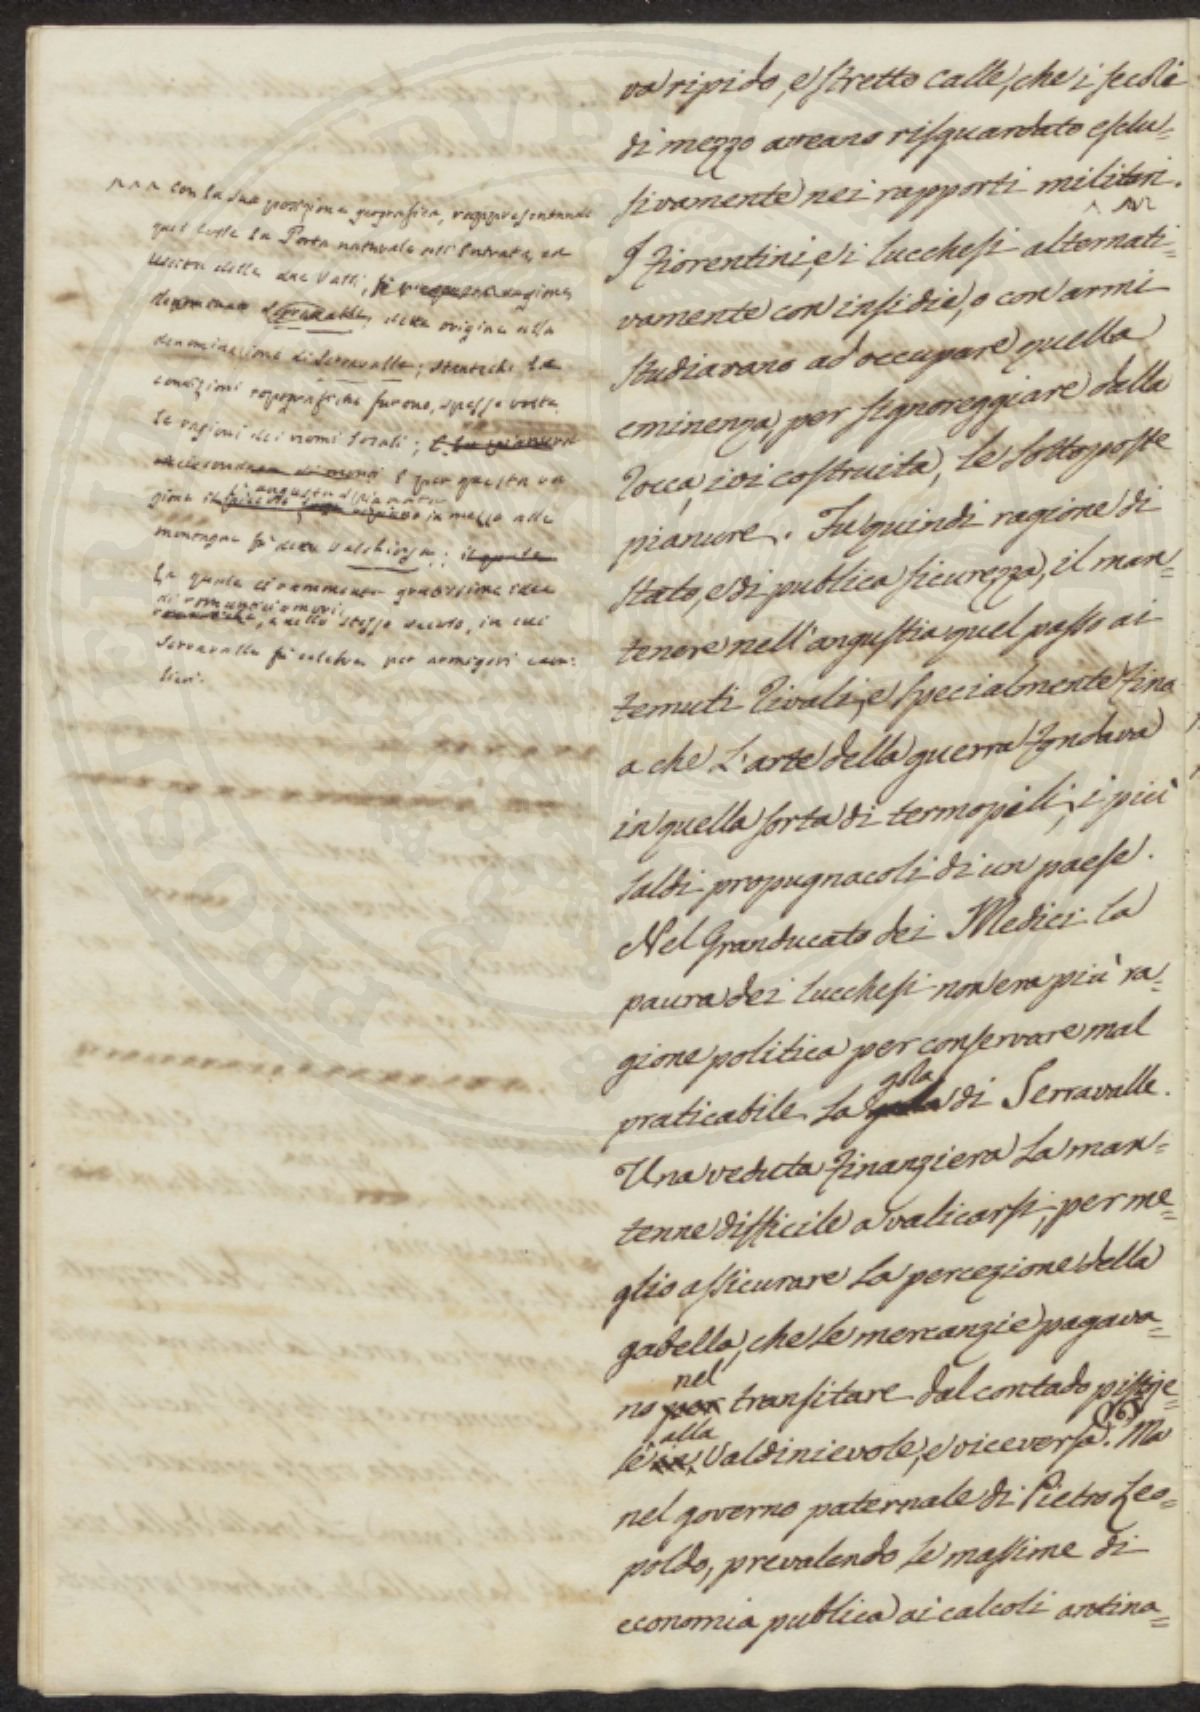 va ripido, e stretto calle, che i secoli
di mezzo aveano risguardato esclu=
sivamente nei rapporti militari.
I Fiorentini, e i Lucchesi alternati=
vamente con insidie, o con armi
studiarano ad occupare quella
eminenza, per signoreggiare dalla
Rocca, ivi costruita, le sottoposte
pianure. Fu quindi ragione di
stato, e di publica sicurezza, il man=
tenere nell'angustia quel passo ai
temuti Rivali, e specialmente fino
a che L'arte della guerra fondava
in quella sorta di termopili, i più
saldi propugnacoli di un paese.
Nel Granducato dei Medici la
paura dei Lucchesi non era più ra=
gione politica per conservare mal
gola
praticabile La di Serravalle.
Una veduta Finanziera La man=
tenne difficile a valicarsi, per me=
glio assicurare La percezione della
gabella, che Le mercanzie pagava=
nel
no per transitare dal contado pistoje=
alla (6)
se in Valdinievole, e viceversa. Ma
nel governo paternale di Pietro Leo=
poldo, prevalendo le massime di
economia publica ai calcoli antina=
^^^ con la sua posizione geografica, rappresentando
quel Colle La Porta naturale all'Entrata, ed
Uscita delle due Valli,
denominato Serravalle, dette origine alla
denominazione di Serravalle; stantechè Le
condizioni topografiche furono, spesse volte,
Le ragioni dei nomi Locali;
E per questa ra
angusta
gione in mezzo alle
montagne fù detta Valchiusa;
La quale ci rammenta gratissime idee
di romantici amori
nello stesso secolo, in cui
Serravalle fù celebre per armigeri cava=
lieri.